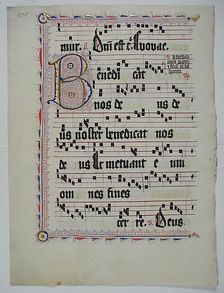 mur. Dm̄ est e Euovae.
Benedi cat
nos de us de
us nostr benedicat nos
de us Et metuant e um
om nes fines
ter re. Deus